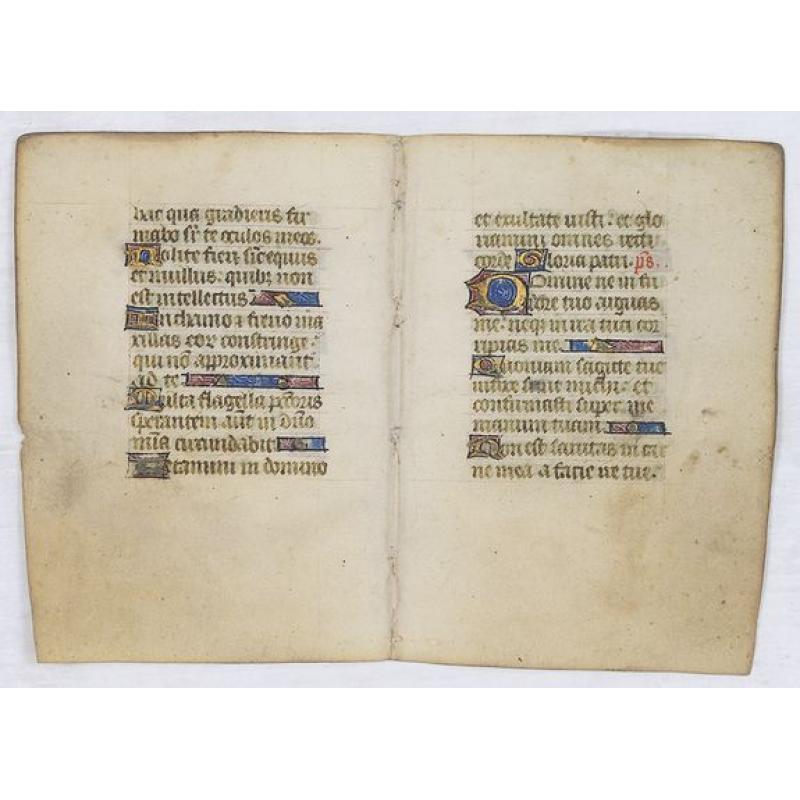 hac qua gradieris fir
mabo sr te oculos meos.
Nolite fieri sic equus
et mullus. quibz non
est intellectus
In chamo ⁊ freno ma
xillas eor constringe.
qui nō approximant
ad te
Multa flagella pctoris
sperantem aut in dno
mīa circundabit
Letamini in domino
et exultate iusti. et glo
riamini omnes recti
corde Gloria patri. ps.
Domine ne in fu
rore tuo arguas
me. neqz in ira tua cor
ripias me.
Quoniam sagitte tue
infixe sunt michi. et
confirmasti super me
manum tuam.
Non est sanitas in car
ne mea a facie ire tue.